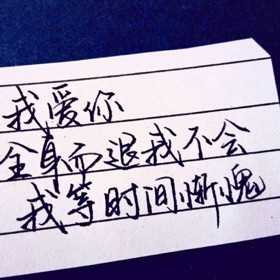 我爱你
全身而退我不会
我等时间惭愧